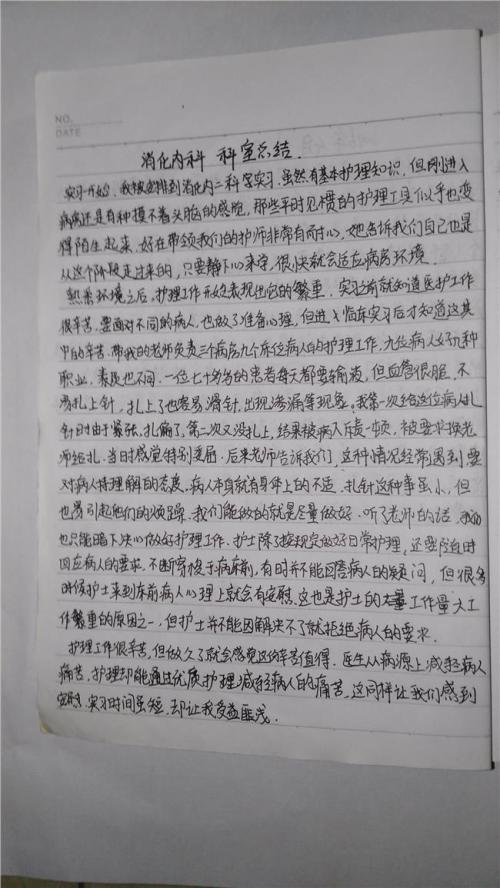 NO.
DATE
消化内科 科室总结.
实习一开始,我被安排到消化内二科实习.虽然有基本护理知识,但刚进入
病房还是有种摸不着头脑的感觉,那些平时见惯的护理工具似乎也变
得陌生起来.好在带领我们的护师非常有耐心,她告诉我们自己也是
从这个阶段走过来的,只要静下心来学,很快就会适应病房环境.
熟悉环境之后,护理工作开始表现出它的繁重.实习之前就知道医护工作
很辛苦.要面对不同的病人,也做了准备心理,但进入临床实习后才知道这其
中的辛苦.带我的老师负责三个病房九个床位病人的护理工作,九位病人好几种
职业.素质也不同.一位七十多岁的患者每天都要输液,但血管很脆.不
易扎上针,扎上了也容易滑针,出现渗漏等现象.我第一次给这位病人扎
针时由于紧张,扎偏了,第二次又没扎上,结果被病人斥责一顿,被要求换老
师给扎.当时感觉特别委屈.后来老师告诉我们,这种情况经常遇到要
对病人持理解的态度.病人本身就有身体上的不适.扎针这种事虽小,但
也易引起他们的烦躁.我们能做的就是尽量做好.听了老师的话.我
也只能暗下决心做好护理工作.护士除了按规定做好日常护理,还要随时
回应病人的要求.不断穿梭于病床前,有时并不能回答病人的疑问,但很多
时候护士来到床前病人心理上就会有安慰.这也是护士的工作量大工
作繁重的原因之一.但护士并不能因解决不了就拒绝病人的要求.
护理工作很辛苦,但做久了就会感觉这份辛苦值得.医生从病源上减轻病人
痛苦,护理却能通过优质护理减轻病人的痛苦.这同样让我们感到
安慰.实习时间虽短.却让我受益匪浅.